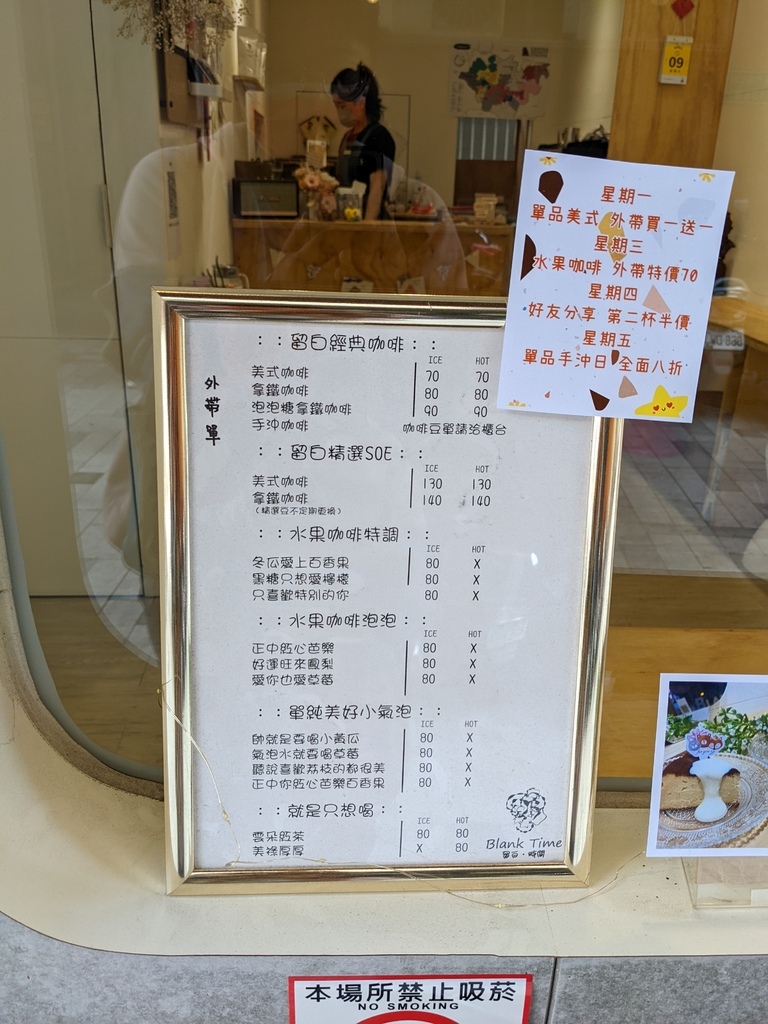 09
星期一
單品美式 外帶買一送一
星期三
水果咖啡 外帶特價70
星期四
好友分享 第二杯半價
星期五
單品手沖日 全面八折
外帶單
：：留白經典咖啡：：
ICE HOT
美式咖啡 70 70
拿鐵咖啡 80 80
泡泡糖拿鐵咖啡 90 90
手沖咖啡 咖啡豆單請洽櫃台
：：留白精選SOE：：
ICE HOT
美式咖啡 130 130
拿鐵咖啡 140 140
（精選豆不定期更換）
：：水果咖啡特調：：
ICE HOT
冬瓜愛上百香果 80 X
黑糖只想愛檸檬 80 X
只喜歡特別的你 80 X
：：水果咖啡泡泡：：
ICE HOT
正中紅心芭樂 80 X
好運旺來鳳梨 80 X
愛你也愛草莓 80 X
：：單純美好小氣泡：：
ICE HOT
帥就是要喝小黃瓜 80 X
氣泡水就要喝草莓 80 X
聽說喜歡荔枝的都很美 80 X
正中你紅心芭樂百香果 80 X
：：就是只想喝：：
ICE HOT
雲朵紅茶 80 80
美祿厚厚 X 80
Blank Time
留白·時間
本場所禁止吸菸
NO SMOKING